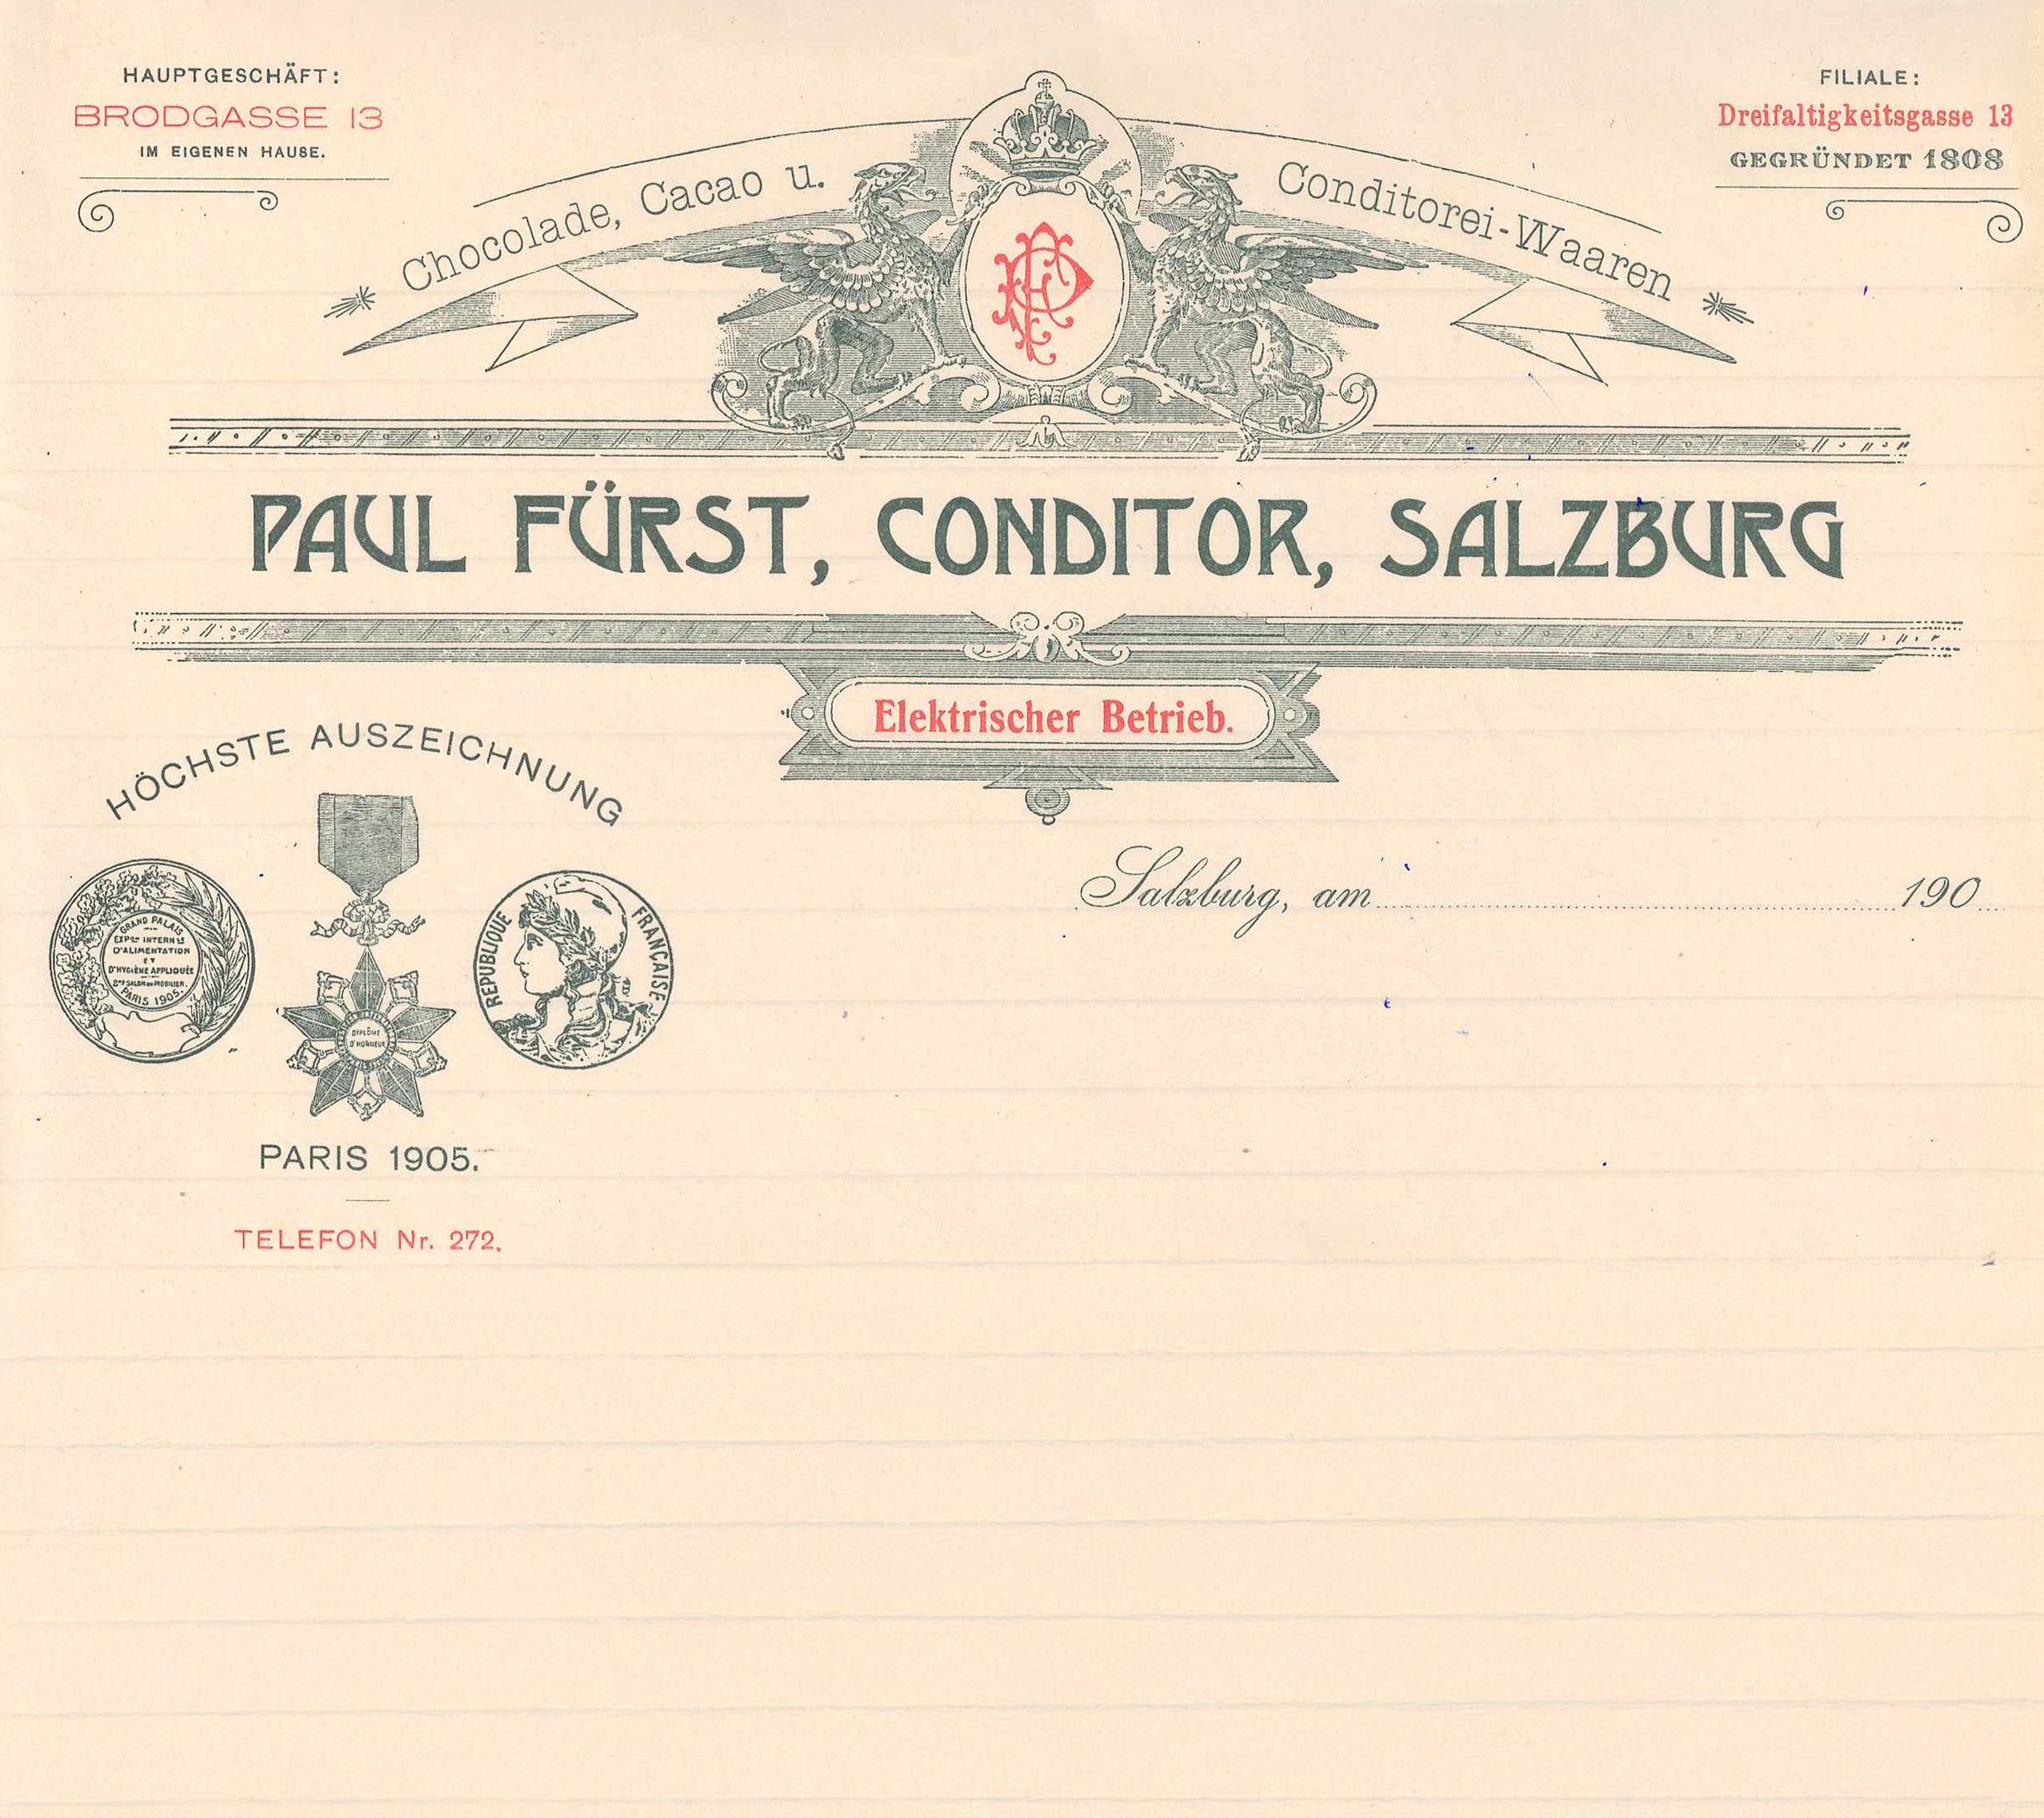 HAUPTGESCHÄFT:
BRODGASSE 13
IM EIGENEN HAUSE.
FILIALE:
Dreifaltigkeitsgasse 13
GEGRÜNDET 1808
Chocolade, Cacao u. Conditorei-Waaren
PF
PAUL FÜRST, CONDITOR, SALZBURG
Elektrischer Betrieb.
HÖCHSTE AUSZEICHNUNG
GRAND PALAIS
EXPON INTERNLE
D'ALIMENTATION
ET
D'HYGIÈNE APPLIQUÉE
2ME SALON DU MOBILIER.
PARIS 1905.
DIPLÔME
D'HONNEUR
REPUBLIQUE FRANÇAISE
PARIS 1905.
TELEFON Nr. 272.
Salzburg, am 190